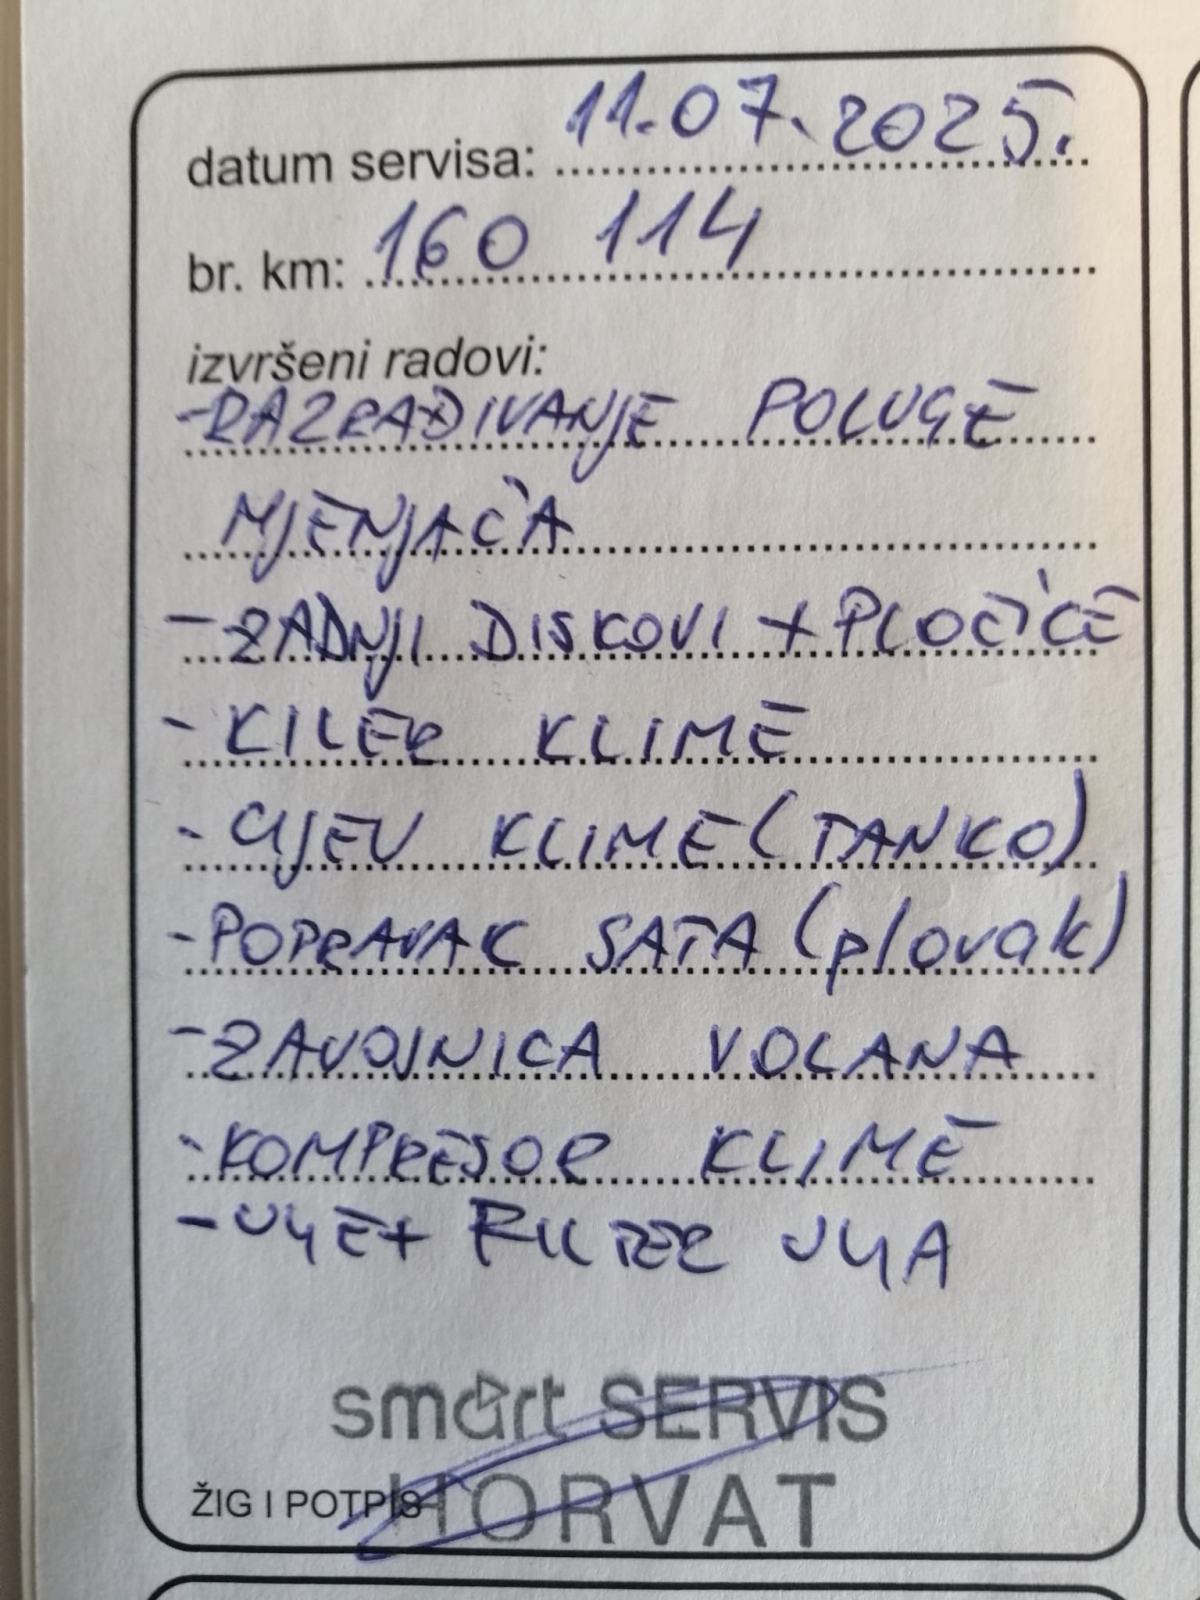 datum servisa: 11.07.2025.
br. km: 160 114
izvršeni radovi:
- RAZRAĐIVANJE POLUGE
MJENJAČA
- ZADNJI DISKOVI + PLOČICE
- KILER KLIME
- CIJEV KLIME (TANKO)
- POPRAVAK SATA (plovak)
- ZAVOJNICA VOLANA
- KOMPRESOR KLIME
- ULJE + FILTER ULJA
smart SERVIS
HORVAT
ŽIG I POTPIS